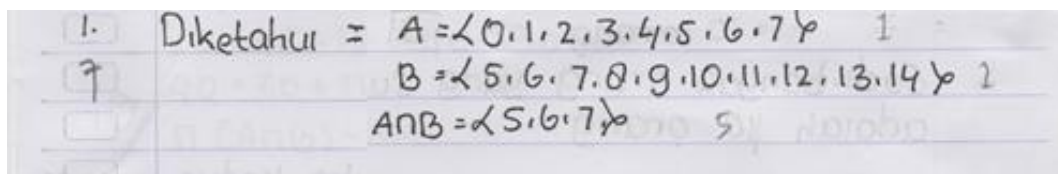 1. Diketahui = A = {0,1,2,3,4,5,6,7} 1
7 B = {5,6,7,8,9,10,11,12,13,14} 2
A∩B = {5,6,7} 5